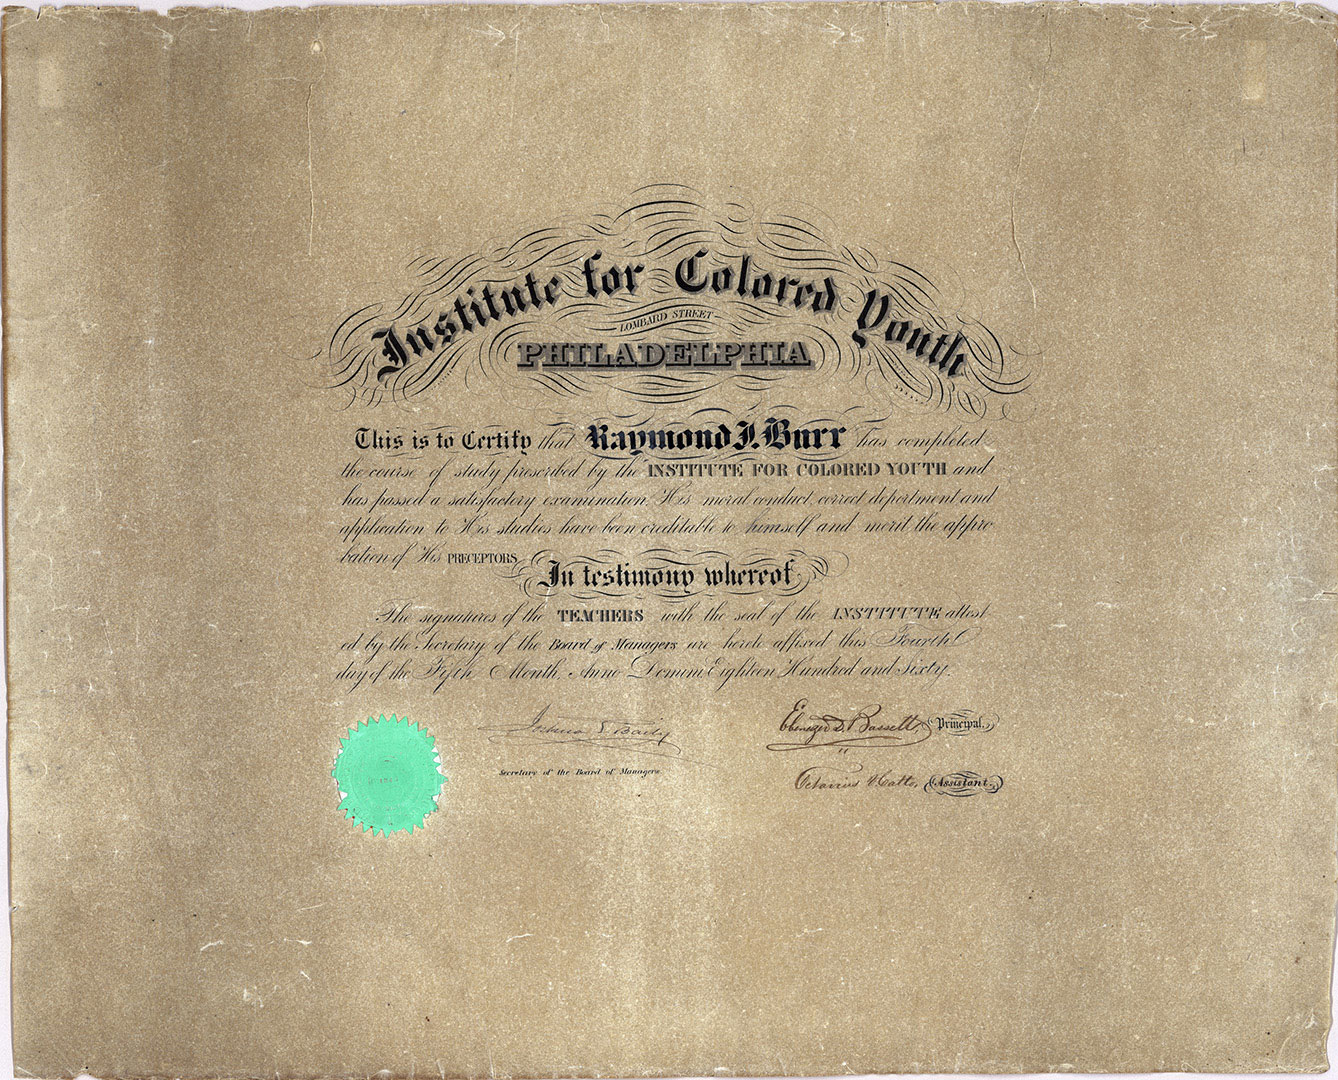 Institute for Colored Youth
LOMBARD STREET
PHILADELPHIA
This is to Certify that Raymond J. Burr has completed
the course of study prescribed by the INSTITUTE FOR COLORED YOUTH and
has passed a satisfactory examination. His moral conduct, correct deportment and
application to His studies have been creditable to himself and merit the appro
bation of His PRECEPTORS
In testimony whereof
The signatures of the TEACHERS with the seal of the INSTITUTE attest
ed by the Secretary of the Board of Managers are hereto affixed this Fourth
day of the Fifth Month, Anno Domini Eighteen Hundred and Sixty.
Joshua L Baily
Secretary of the Board of Managers
Ebenezer D. Bassett, Principal.
Octavius V Catto, Assistant.